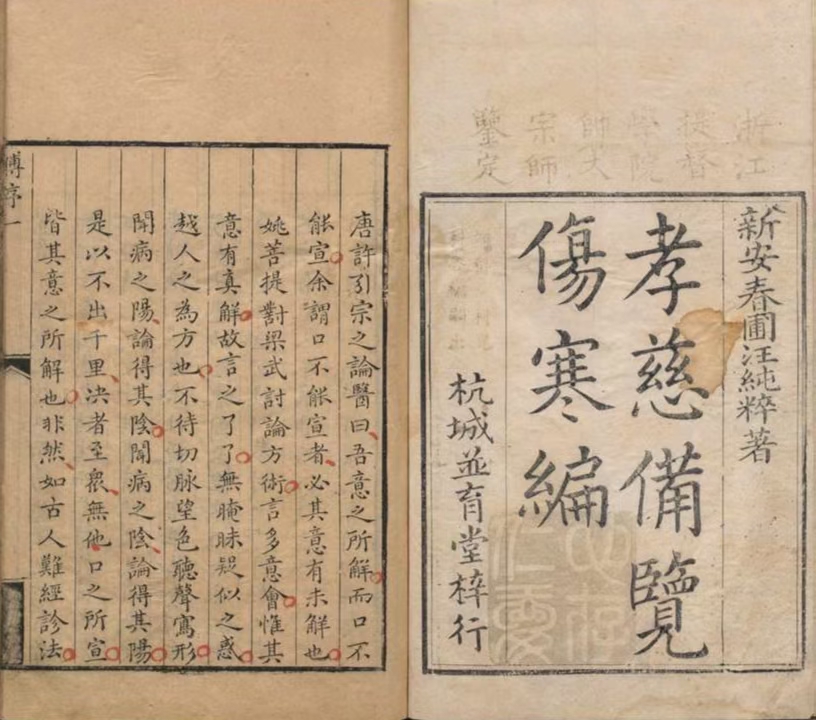 浙江
提督
學院
帥大
宗師
鑒定
新安春圃汪純粹著
孝慈備覽
傷寒編
杭城並育堂梓行
唐許引宗之論醫曰吾意之所解而口不
能宣余謂口不能宣者必其意有未解也
姚菩提對梁武討論方術言多意會惟其
意有真解故言之了了無晻昧疑似之惑
越人之為方也不待切脉望色聽聲寫形
聞病之陽論得其陰聞病之陰論得其陽
是以不出千里决者至衆無他口之所宣
皆其意之所解也非然如古人難經診法
傅序 一